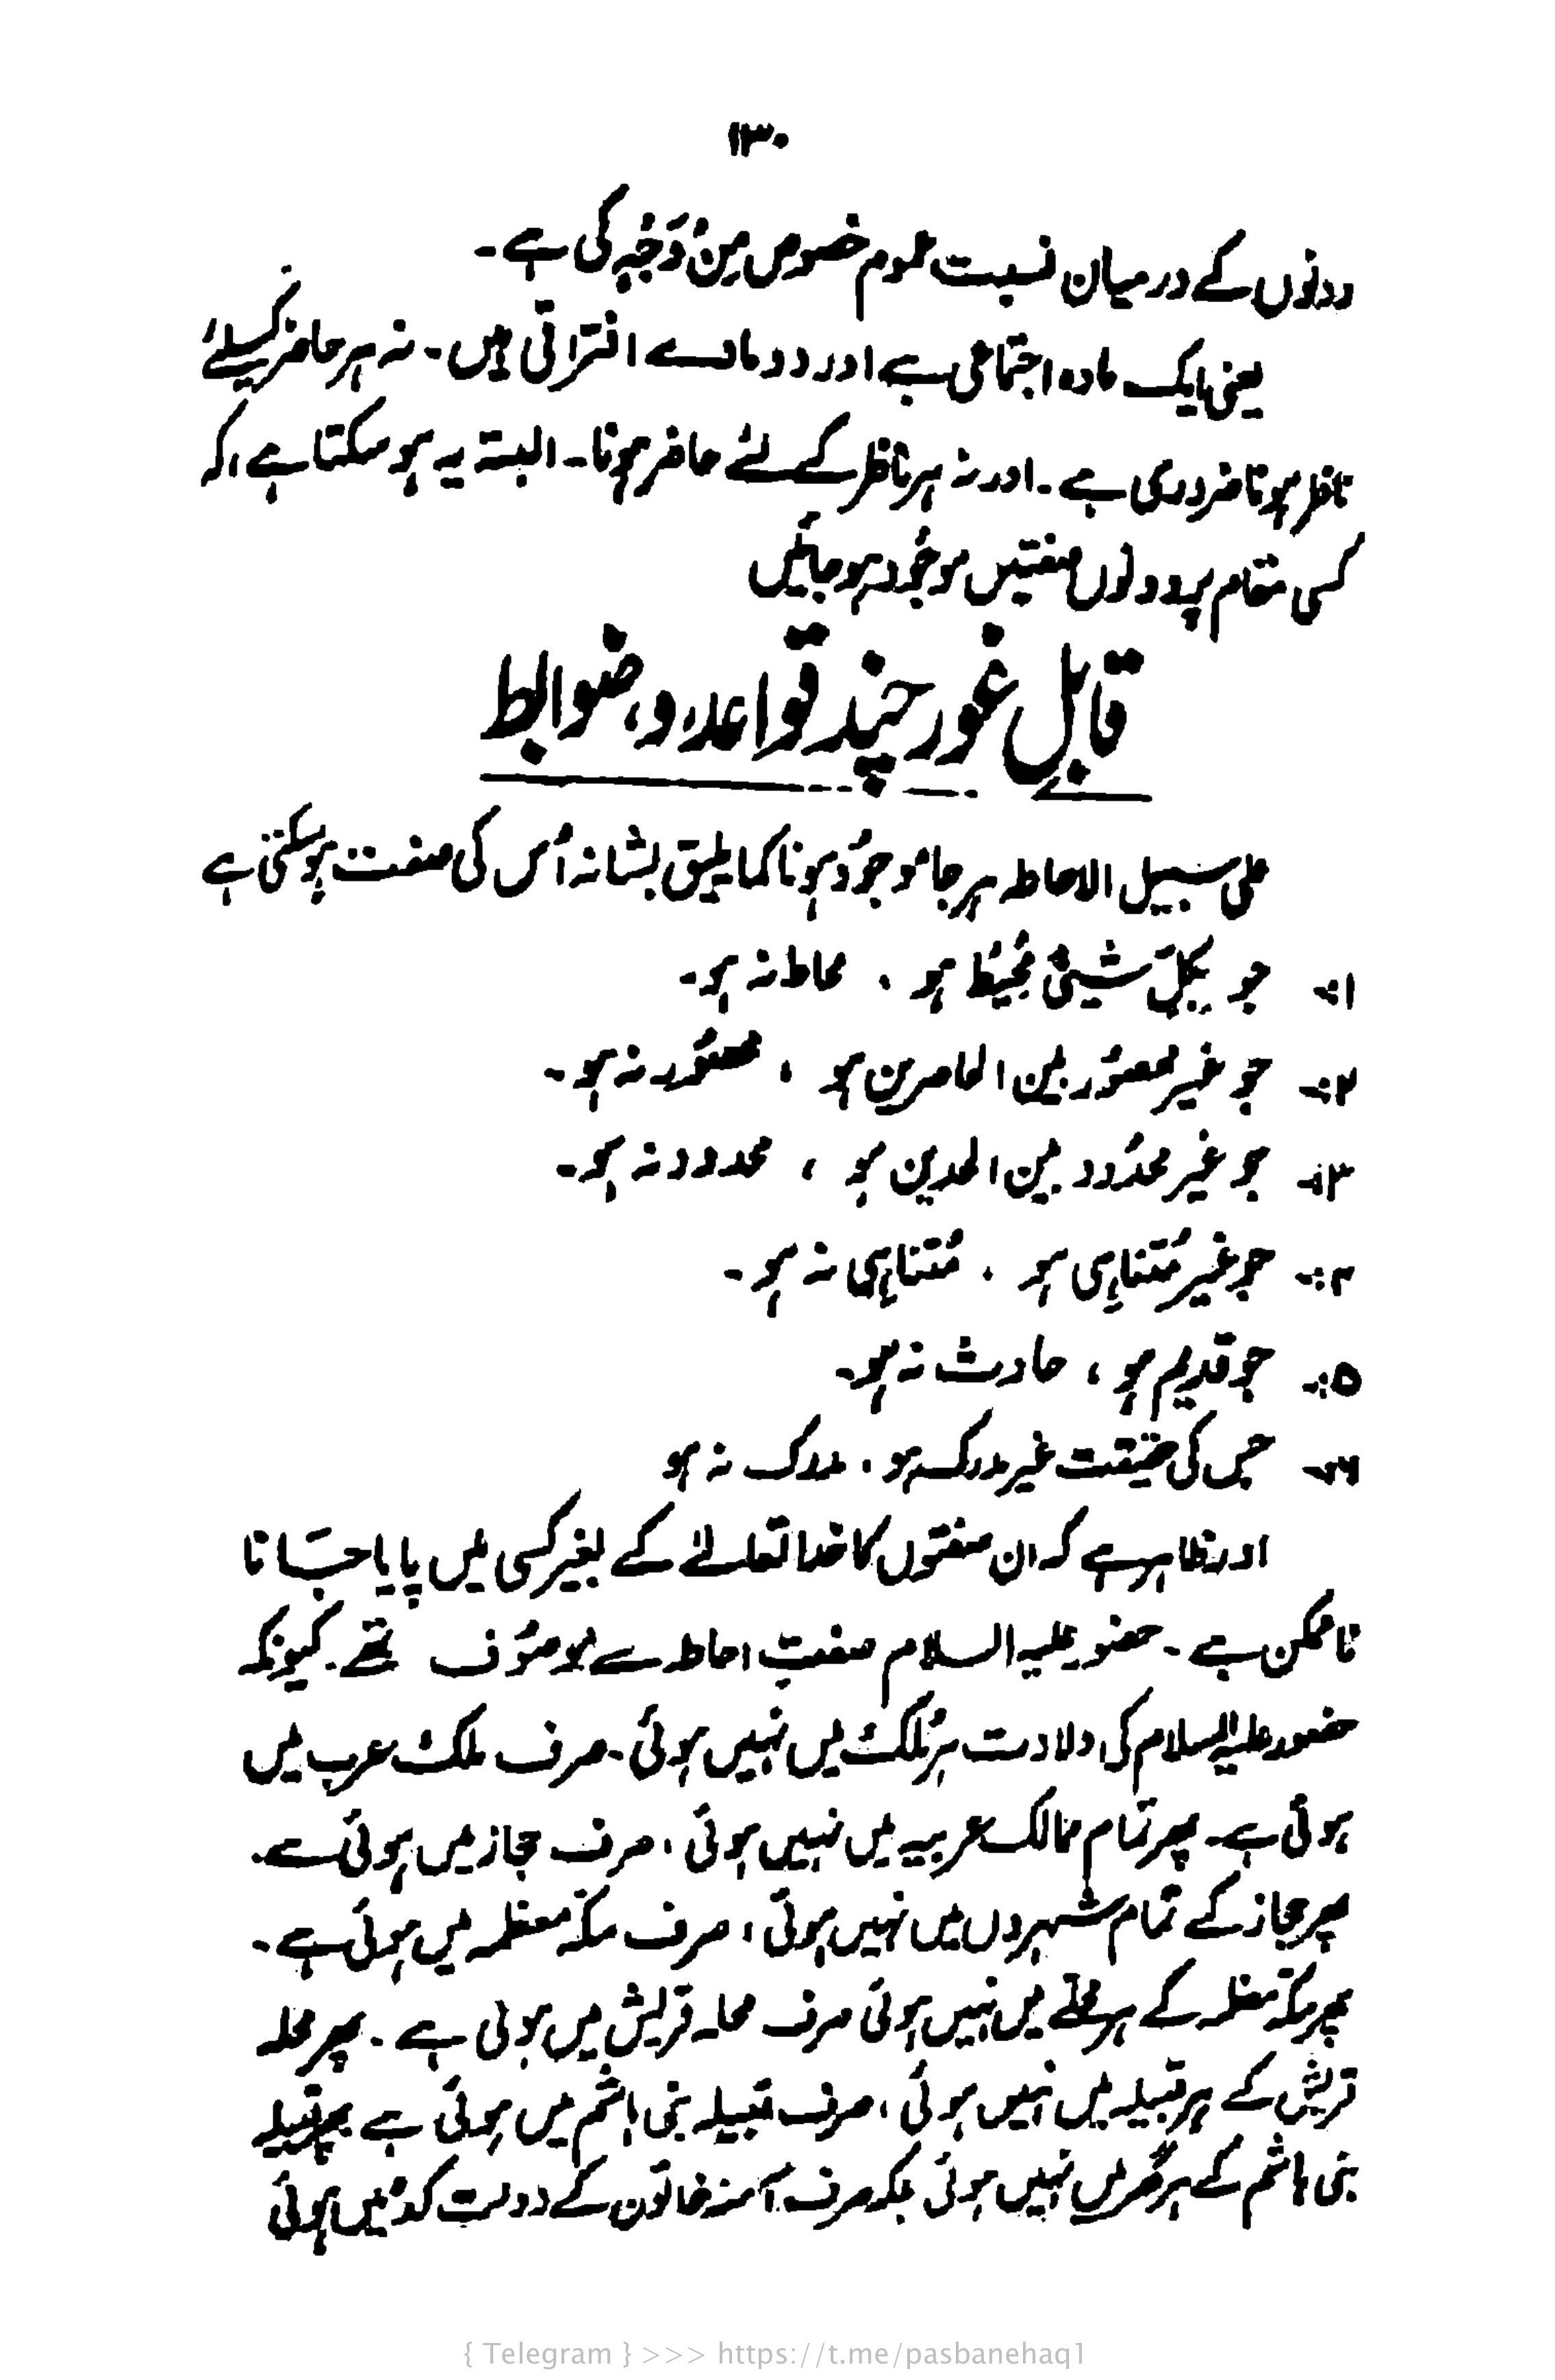 ۱۳۰
دونوں کے درمیان نسبت عموم خصوص مِنْ وَجْہٍ کی ہے۔
یعنی ایک مادہ اجتماعی ہے اور دو مادے افتراقی ہیں۔ نہ ہر حاضر کیلئے
ناظر ہونا ضروری ہے۔ اور نہ ہر ناظر کے لئے حاضر ہونا۔ البتہ یہ ہو سکتا ہے، کہ
کسی مقام پر دونوں صفتیں موجُود ہو جائیں
قابلِ غور چند قواعد، و، ضوابط
علی سبیل الاحاطہ ہر جا موجوُد ہونا کما یلیق بشانہ اُس کی صفت ہوسکتی ہے
۱۔ جو بِکُلِّ شَیْئٍ مُّحِیْط ہو ، محاط نہ ہو۔
۲۔ جو غیر محصُور بین الحاصرین ہو ، محصُور نہ ہو۔
۳۔ جو غیر محدُود بین الحدین ہو ، محدود نہ ہو۔
۴۔ جو غیر مُتناہِی ہو ، مُتناہِی نہ ہو۔
۵۔ جو قدیم ہو ، حادث نہ ہو۔
۶۔ جس کی حقیقت غیر مدرک ہو ، مدرک نہ ہو
اور ظاہر ہے کہ ان صفتوں کا خدا تعالےٰ کے بغیر کسی میں پایا جانا
ناممکن ہے ۔ حضور علیہ السلام صفتِ احاطہ سے موصُوف تھے۔ کیونکہ
حضور علیہ السلام کی ولادت ہر مُلک میں نہیں ہوئی۔ صرف ملک عرب میں
ہوئی ہے۔ پھر تمام ممالک عربیہ میں نہیں ہوئی ، صرف حجاز میں ہوئی ہے۔
پھر حجاز کے تمام شہروں میں نہیں ہوئی ، صرف مکّہ معظمہ میں ہوئی ہے ۔
پھر مکّہ معظمہ کے ہر محلّے میں نہیں ہوئی صرف محلہ قریش میں ہوئی ہے ۔ پھر محلہ
قریش کے ہر قبیلہ میں نہیں ہوئی ، صرف قبیلہ بنی ہاشم میں ہوئی ہے پھر قبیلہ
بنی ہاشم کے ہر گھر میں نہیں ہوئی بلکہ صرف آمنہ خاتون کے دولت کدہ میں ہوئی
{ Telegram } >>> https://t.me/pasbanehaq1